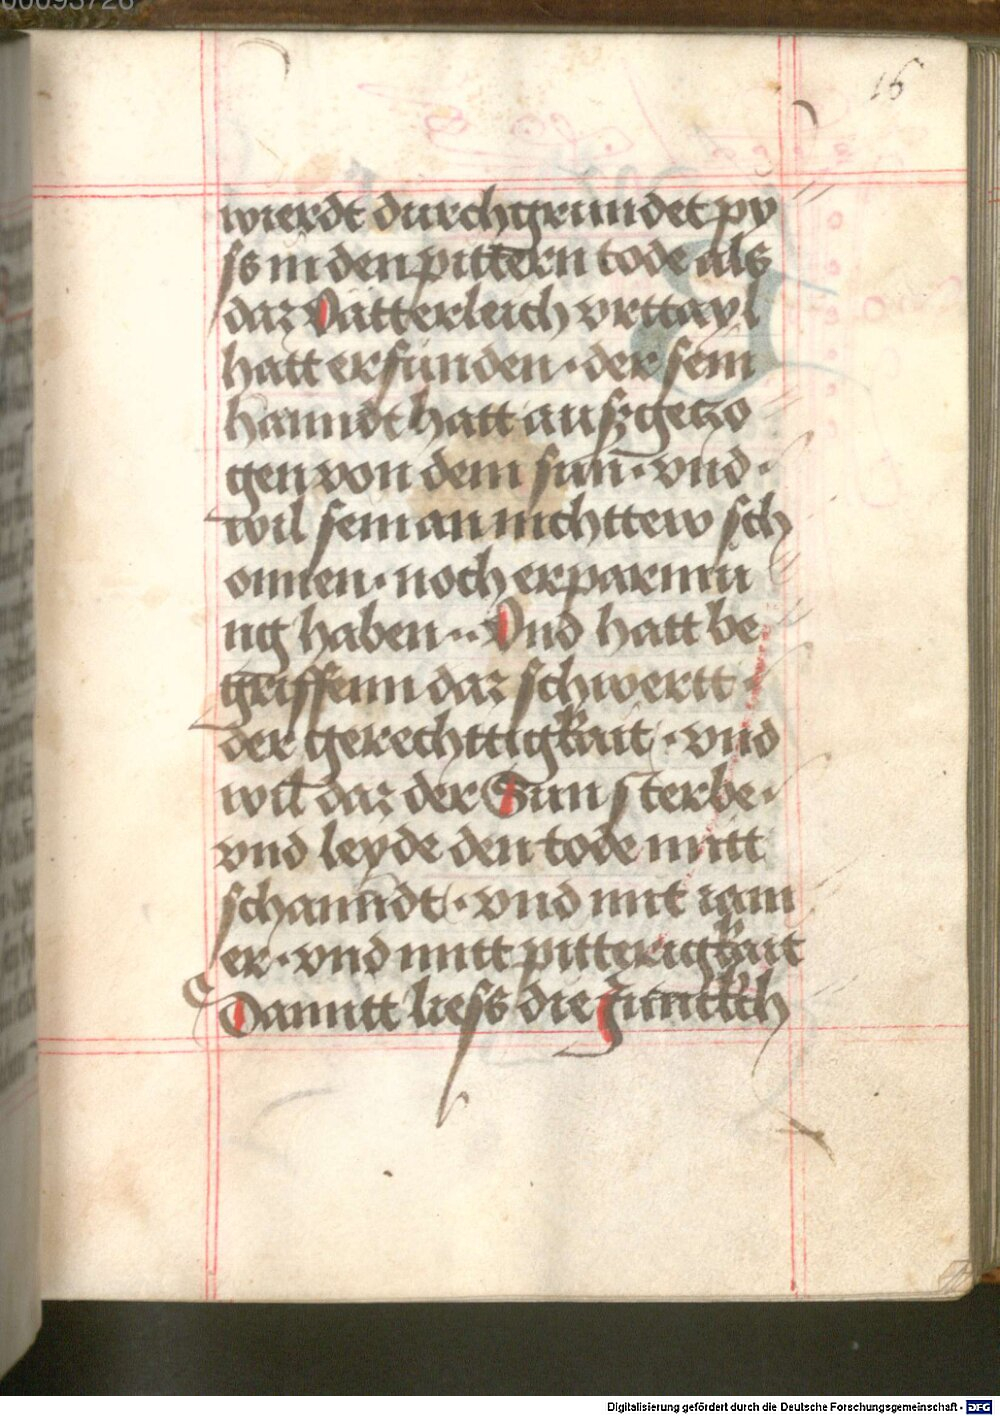 00093726
16
wierdt durchgrundet py
ss in den pittern tode als
daz Vätterleich vrttayl
hatt erfunden · der sein
hanndt hatt ausz getzo
gen von dem sun · vnd ·
wil sein an nichttew sch
onnen · noch erparmu
ng haben ·· Vnd hatt be
griffenn daz schwertt ·
der gerechttigkait · vnd
wil daz der Sun sterbe ·
vnd leyde den tode mitt
schanndt · vnd mit iam
er · vnd mitt pitterigkait
Damitt liess die
Digitalisierung gefördert durch die Deutsche Forschungsgemeinschaft - DFG